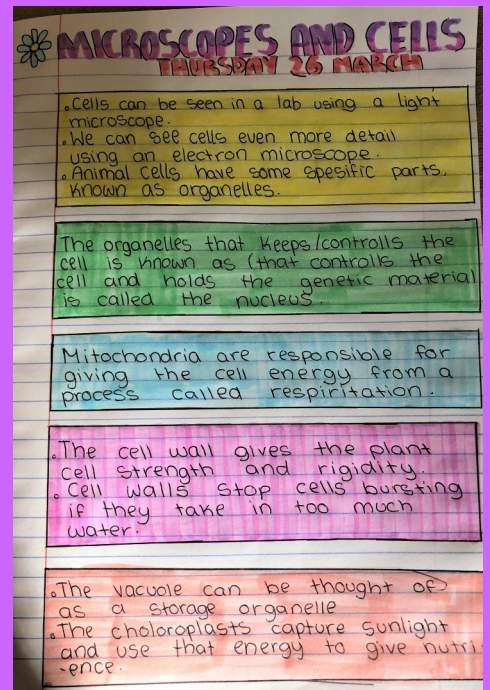 MICROSCOPES AND CELLS
THURSDAY 26 MARCH
• Cells can be seen in a lab using a light
microscope.
• We can see cells even more detail
using an electron microscope.
• Animal cells have some spesific parts,
known as organelles.
The organelles that keeps/controlls the
cell is known as (that controlls the
cell and holds the genetic material
is called the nucleus.
Mitochondria are responsible for
giving the cell energy from a
process called respiritation.
• The cell wall gives the plant
cell strength and rigidity.
• Cell walls stop cells bursting
if they take in too much
water.
• The vacuole can be thought of
as a storage organelle
• The choloroplasts capture sunlight
and use that energy to give nutri
-ence.